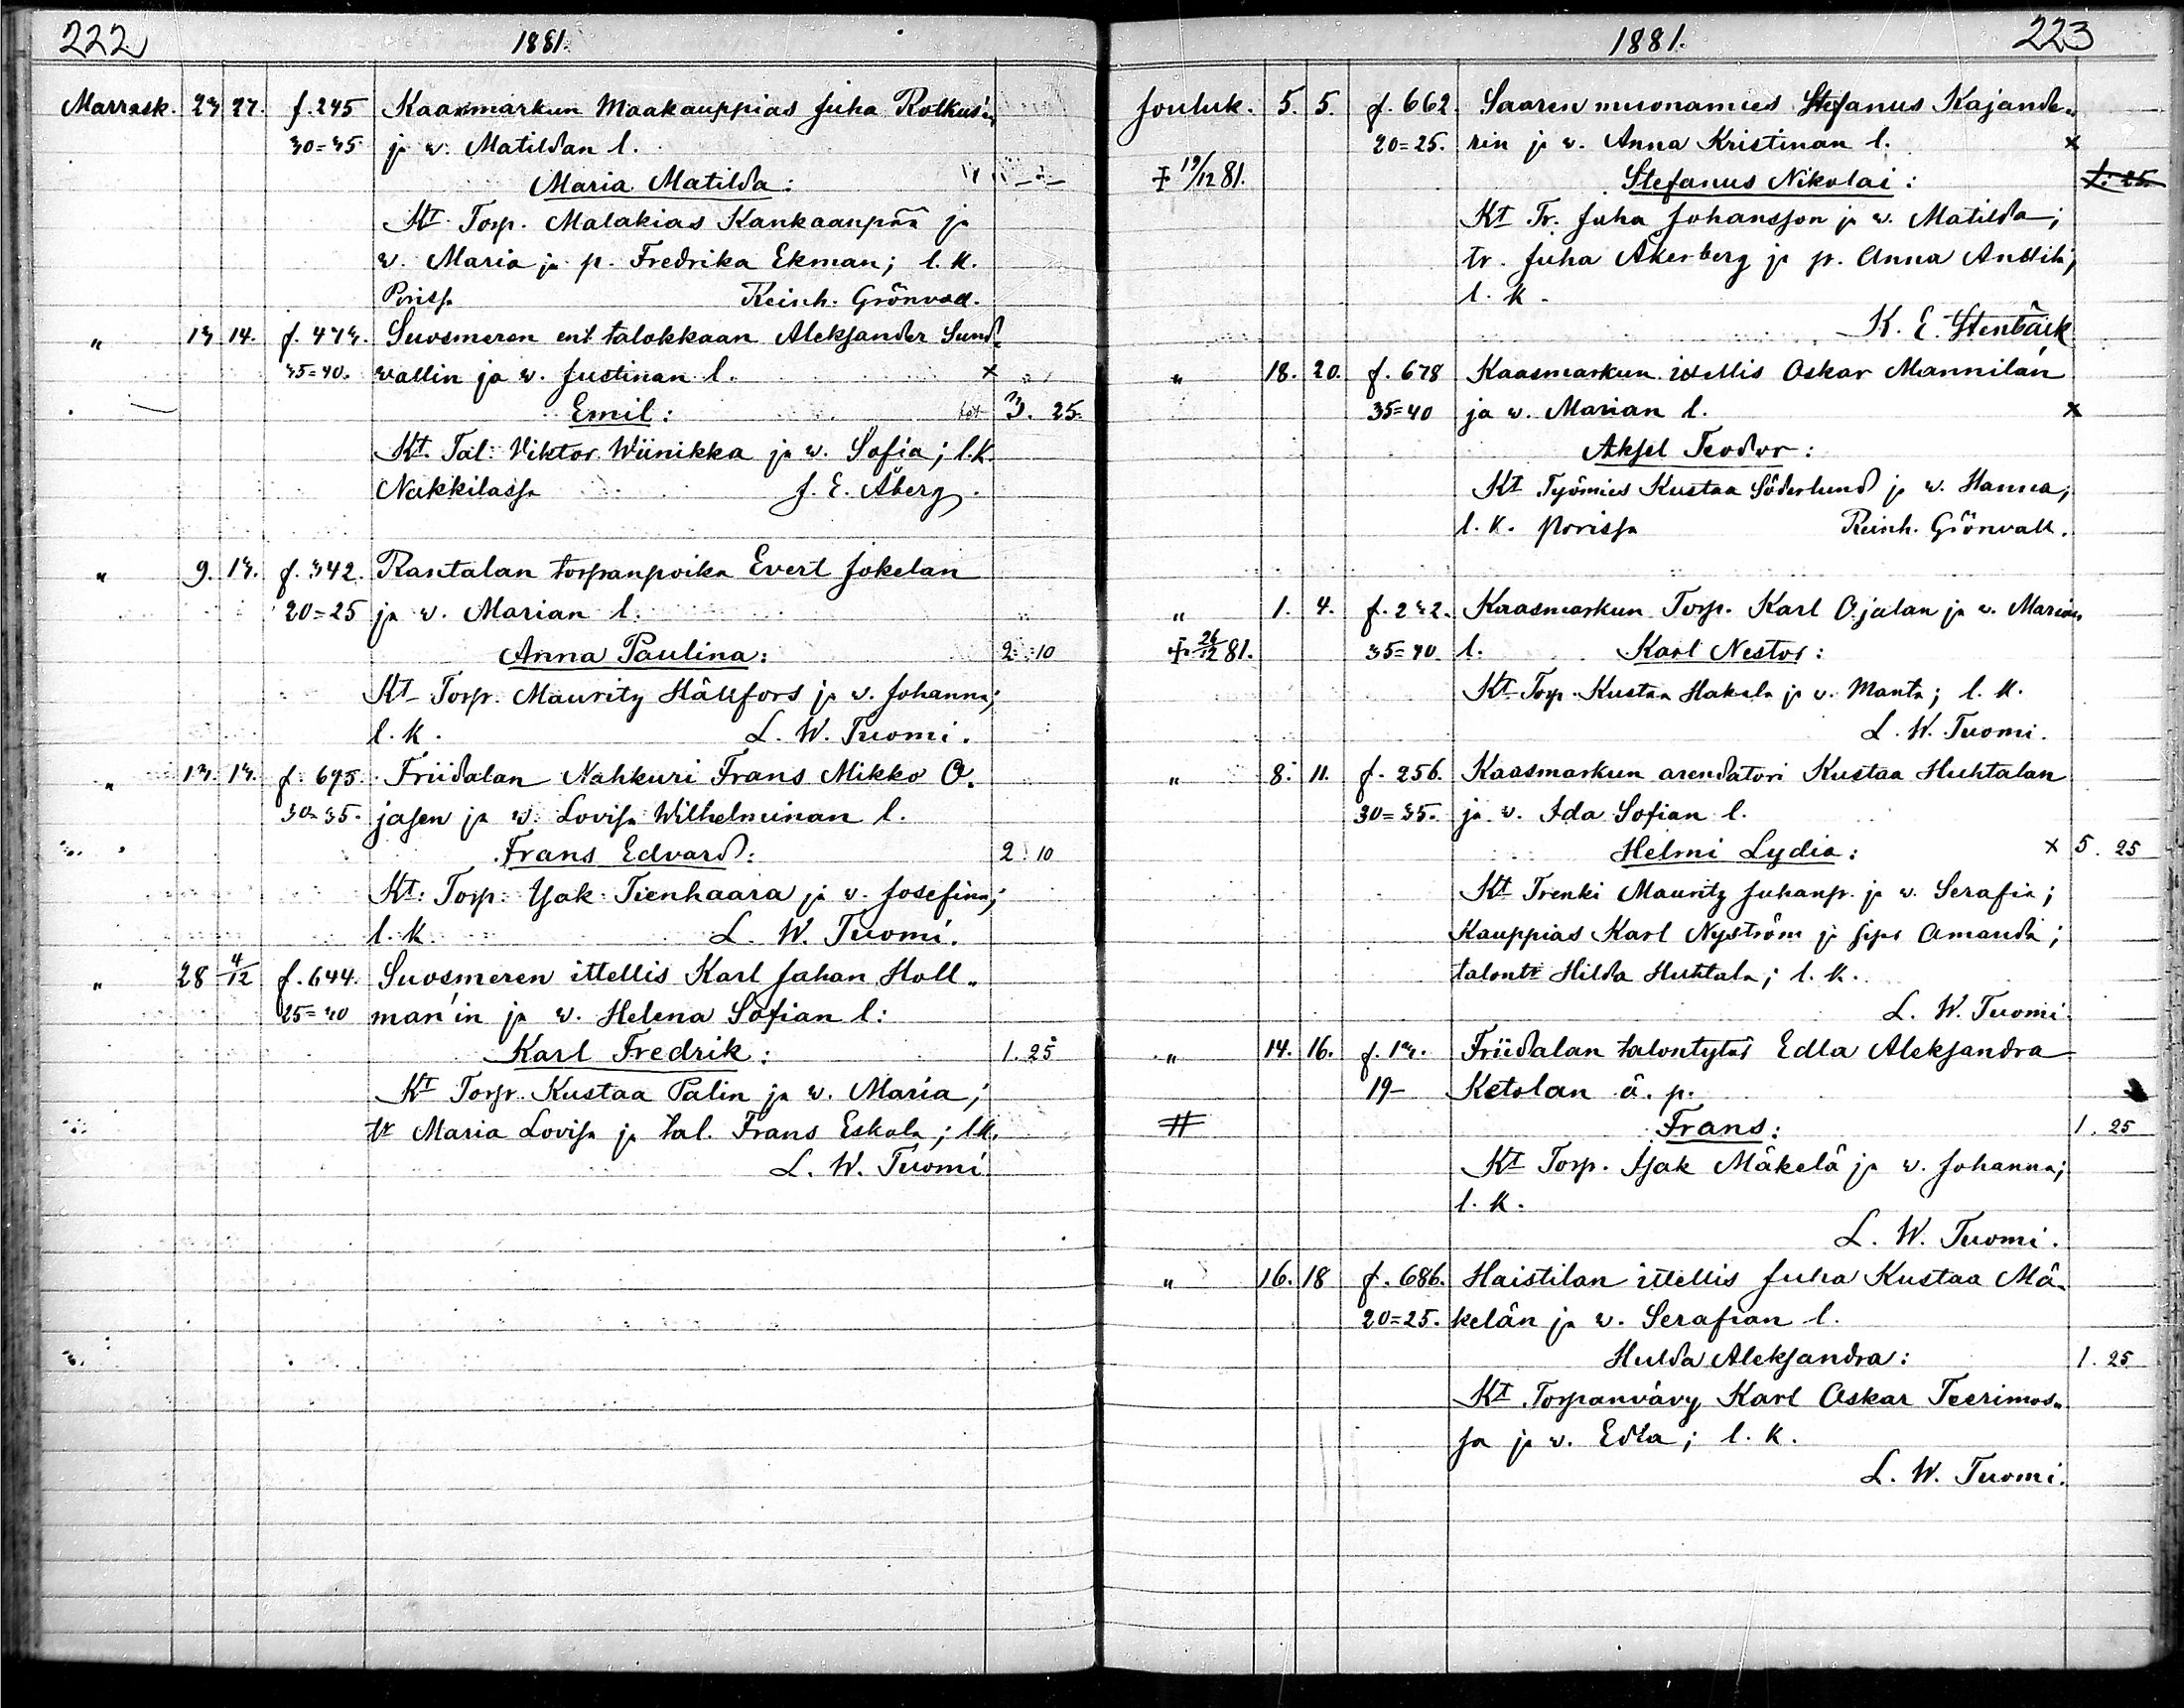 222 1881.
Marrask. 23 27. f. 245 Kaasmarkun Maakauppias Juha Rotkus'in
30=35 ja w. Matildan l.
Maria Matilda:
Kt. Torp. Malakias Kankaanpää ja
w. Maria ja p. Fredrika Ekman; l. k.
Porissa Reinh. Grönvall.
" 13 14. f. 473. Suosmeren ent talokkaan Aleksander Sund„
35=40. wallin ja w. Justinan l. x
Emil: 3. 25.
Kt. Tal: Viktor Wiinikka ja w. Sofia; l.k.
Nakkilassa J. E. Åberg.
" 9. 13. f. 342. Rantalan torpanpoika Evert Jokelan
20=25 ja w. Marian l.
Anna Paulina: 2. 10
Kt Torp. Mauritz Hällfors ja w. Johanna;
l. k. L. W. Tuomi.
" 13. 13. f. 695. Friidalan Nahkuri Frans Mikko O.
30=35. jasen ja w. Lovisa Wilhelminan l.
Frans Edvard: 2. 10
Kt: Torp: Isak Tienhaara ja w. Josefina;
l. k. L. W. Tuomi.
" 28 4/12 f. 644. Suosmeren ittellis Karl Johan Holl„
25=40 man'in ja w. Helena Sofian l:
Karl Fredrik: 1. 25
Kt Torp. Kustaa Palin ja w. Maria;
tr Maria Lovisa ja tal. Frans Eskola; l.k.
L. W. Tuomi.
1881. 223
Jouluk. 5. 5. f. 662. Saaren muonamies Stefanus Kajande„
20=25. rin ja w. Anna Kristinan l. x
‡ 19/12 81. Stefanus Nikolai: 1. 25
Kt Tr. Juha Johansson ja w. Matilda;
tr. Juha Åkerberg ja p. Anna Anttila;
l. k.
K. E. Stenbäck
" 18. 20. f. 678 Kaasmarkun ittellis Oskar Mannilan
35=40 ja w. Marian l. x
Aksel Teodor:
Kt Työmies Kustaa Söderlund ja w. Hanna;
l. k. Porissa Reinh. Grönvall.
" 1. 4. f. 232. Kaasmarkun Torp. Karl Ojalan ja w. Marian
‡ 26/12 81. 35=40. l. Karl Nestor:
Kt Torp. Kustaa Hakala ja w. Manta; l. k.
L. W. Tuomi.
" 8. 11. f. 256. Kaasmarkun arendatori Kustaa Huhtalan
30=35. ja w. Ida Sofian l.
Helmi Lydia: x 5. 25
Kt Trenki Mauritz Juhanp. ja w. Serafia;
Kauppias Karl Nyström ja Amanda;
talontr Hilda Huhtala; l. k.
L. W. Tuomi.
" 14. 16. f. 13. Friidalan talontytär Edla Aleksandra
19- Ketolan ä. p.
# Frans: 1. 25
Kt Torp. Isak Mäkelä ja w. Johanna;
l. k.
L. W. Tuomi.
" 16. 18 f. 686. Haistilan ittellis Juha Kustaa Mä„
20=25. kelän ja w. Serafian l.
Hulda Aleksandra: 1. 25
Kt Torpanvävy Karl Oskar Teerimos„
sa ja w. Edla; l. k.
L. W. Tuomi.